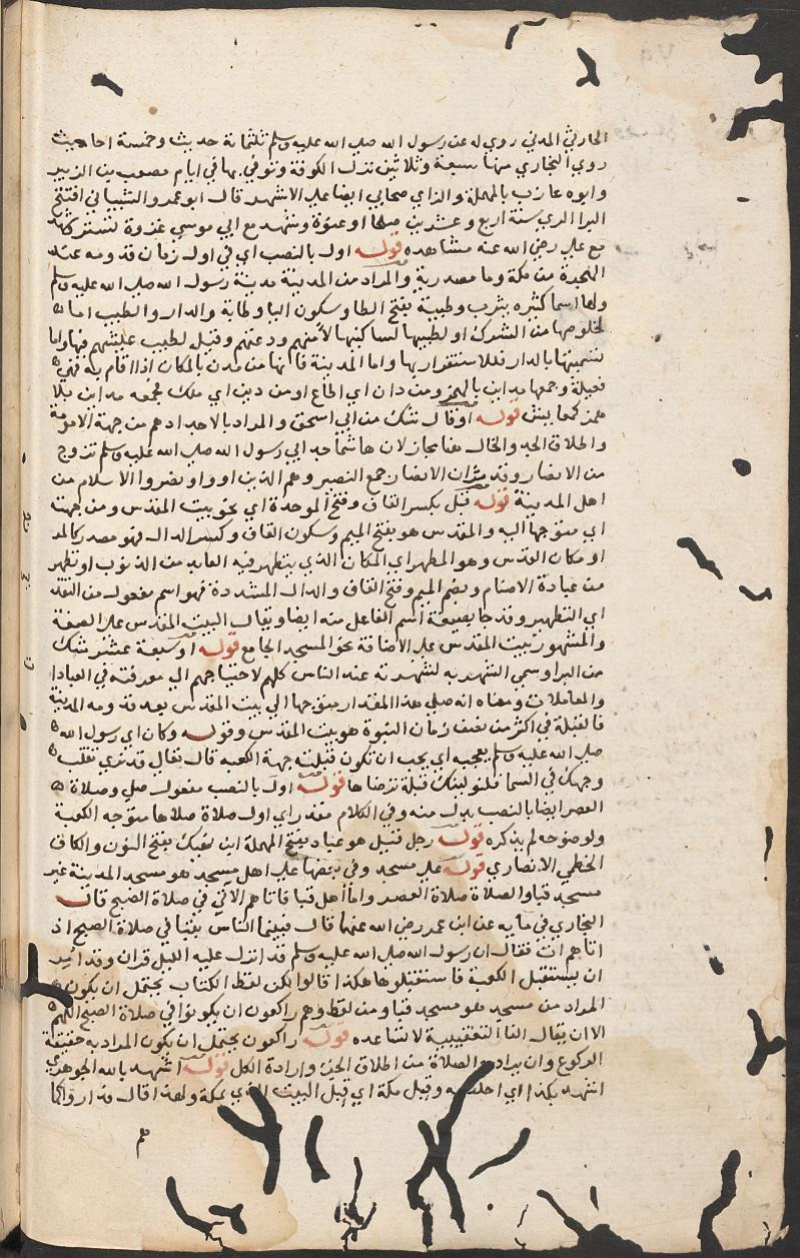 الحارثي المدني روي له عن رسول الله صلي الله عليه وسلم ثلثماية حديث وخمسة احاديث
روي البخاري منها سبعة وثلاثين نزل الكوفة وتوفي بها في ايام مصعب بن الزبير
وابوه عازب بالمهملة والزاي صحابي ايضا علي الاشهر قال ابو عمرو الشيباني افتتح
البرا الري سنة اربع وعشرين صلحا او عنوة وشهد مع ابي موسي غزوة تستر
مع علي رضي الله عنه مشاهده قوله اول بالنصب اي في اول زمان قدومه عند
الهجرة من مكة وما مصدرية والمراد من المدينة مدينة رسول الله صلي الله عليه وسلم
ولها اسما كثيره يثرب وطيبة بفتح الطا وسكون اليا وطابة والدار والطيب اما
لخلوصها من الشرك او لطيبها لساكنيها لأمنهم ودعتهم وقيل لطيب عيشهم فيها واما
تسميتها بالدار فللاستقرار بها واما المدينة فانها من مدن بالمكان اذا اقام به فهي
فعيلة وجمعها مداين بالهمز ومن دان اي اطاع او من دين اي ملك فجمعه مداين بلا
همز كمعايش قوله او قال شك من ابي اسحق والمراد بالاجداد هم من جهة الامومة
واطلاق الجد والخال هنا مجاز لان هاشما جد ابي رسول الله صلي الله عليه وسلم تزوج
من الانصار وقد مر ان الانصار جمع النصير وهم الذين اووا ونصروا الاسلام من
اهل المدينة قوله قبل بكسر القاف وفتح الموحدة اي نحو بيت المقدس ومن جهته
اي متوجها اليه والمقدس هو بفتح الميم وسكون القاف وكسر الدال فهو مصدر
او مكان القدس وهو المطهر اي المكان الذي يتطهر فيه العابد من الذنوب او تطهر
من عبادة الاصنام وبضم الميم وفتح القاف والدال المشددة فهو اسم مفعول من
اي التطهير وقد جا بصيغة اسم الفاعل منه ايضا ويقال البيت المقدس علي الصفة
والمشهور بيت المقدس علي الاضافة نحو المسجد الجامع قوله او سبعة عشر شك
من البرا وسمي الشهر به لشهرته عند الناس كلهم لاحتياجهم الي معرفته في العبادا
والمعاملات ومعناه انه صلي هذا المقدار متوجها الي بيت المقدس بعد قدومه المدينة
فالقبلة في اكثر من نصف زمان النبوة هو بيت المقدس وقوله وكان اي رسول الله
صلي الله عليه وسلم يعجبه اي يحب ان تكون قبلته جهة الكعبه قال تعالي قد نري تقلب
وجهك في السما فلنولينك قبلة ترضاها قوله اول بالنصب مفعول صلي وصلاة
العصر ايضا بالنصب بدل منه وفي الكلام مقدر اي اول صلاة صلاها متوجه الكعبة
ولوضوحه لم يذكره قوله رجل قيل هو عباد بفتح المهملة ابن نهيك بفتح النون والكاف
الخطمي الانصاري قوله علي مسجد وفي بعضها علي اهل مسجد هو مسجد المدينة غير
مسجد قبا والصلاة صلاة العصر واما اهل قبا فاتاهم الاتي في صلاة الصبح قال
البخاري في ما به عن ابن عمر رضي الله عنهما قال فبينما الناس بقبا في صلاة الصبح اذ
اتاهم ات فقال ان رسول الله صلي الله عليه وسلم قد انزل عليه الليل قران وقد امر
ان يستقبل الكعبة فاستقبلوها هكذا قالوا لكن لفظ الكتاب يحتمل ان يكون
المراد من مسجد هو مسجد قبا ومن لفظ وهم راكعون ان يكونوا في صلاة الصبح اللهم
الا ان يقال الفا التعقيبية لا تساعده قوله راكعون يحتمل ان يكون المراد به حقيقة
الركوع وان يراد به الصلاة من اطلاق الجزء وارادة الكل قوله اشهد بالله الجوهري
اشهد بكذا اي احلف به وقبل مكة اي قبل البيت الذي بمكة ولهذا قال فداروا كما
هم